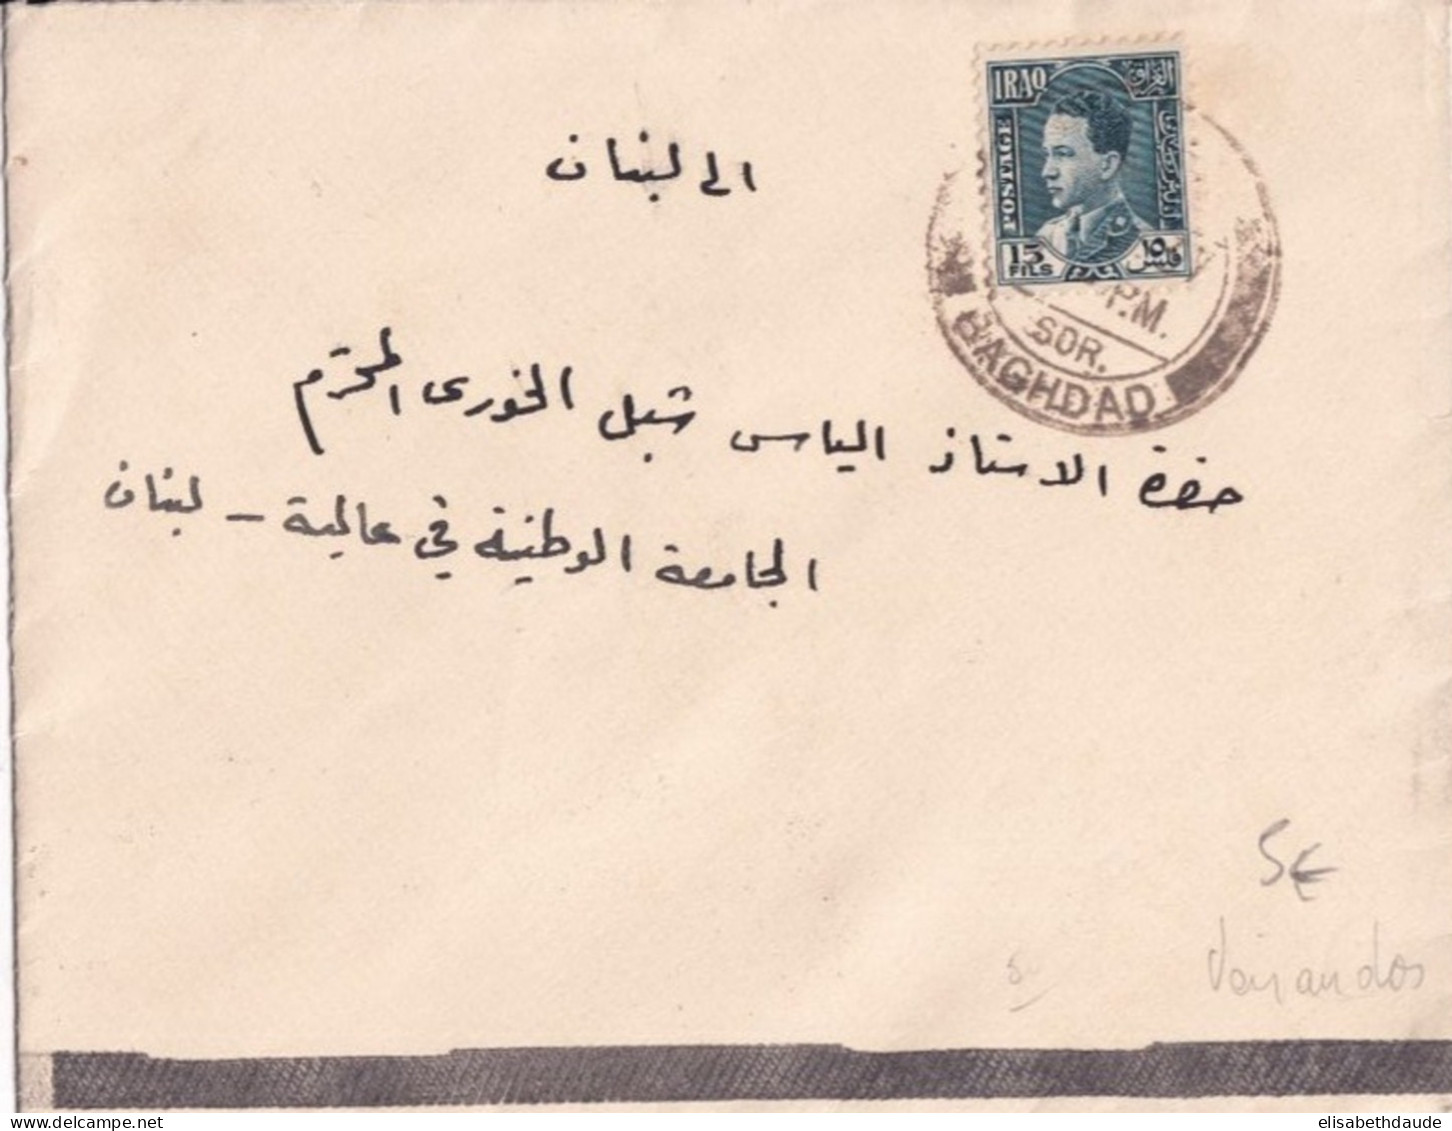 IRAQ
العراق
POSTAGE
15
FILS
١٥
فلس
P.M.
SOR.
BAGHDAD
الى لبنان
حضرة الاستاذ الياس شبل الخورى المحترم
الجامعة الوطنية في عالية - لبنان
5€
Voir au dos
elisabethdaude